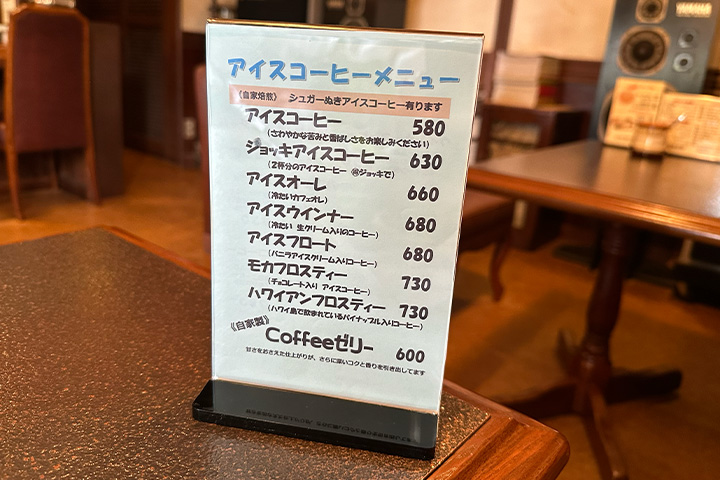 アイスコーヒーメニュー
《自家焙煎》 シュガーぬきアイスコーヒー有ります
アイスコーヒー 580
(さわやかな苦みと香ばしさをお楽しみください)
ジョッキアイスコーヒー 630
(2杯分のアイスコーヒー ジョッキで)
アイスオーレ 660
(冷たいカフェオレ)
アイスウインナー 680
(冷たい 生クリーム入りのコーヒー)
アイスフロート 680
(バニラアイスクリーム入りコーヒー)
モカフロスティー 730
(チョコレート入り アイスコーヒー)
ハワイアンフロスティー 730
(ハワイ島で飲まれているパイナップル入りコーヒー)
《自家製》
Coffeeゼリー 600
甘さをおさえた仕上がりが、さらに深いコクと香りを引き出してます
YAMAHA